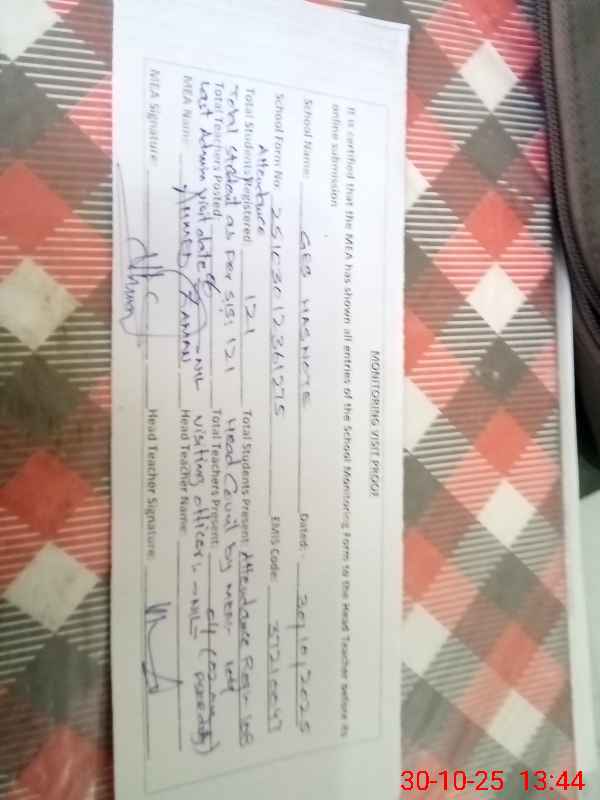 MONITORING VISIT PROOF
It is certified that the MEA has shown all entries of the School Monitoring Form to the Head Teacher before its
online submission
School Name: GES Dated:- 30/10/2025
School Form No: 25103012361575 EMIS Code:
Attendance
Total Students Registered: 121 Total Students Present: Attendance 108
Total student as per SIS: 121 Head Count by MEA:-
Total Teachers Posted: Total Teachers Present: 04
Last Admin visit date → NIL visiting officers → NIL
MEA Name: AHMED ZAMAN Head Teacher Name:
MEA Signature: Head Teacher Signature:
30-10-25 13:44